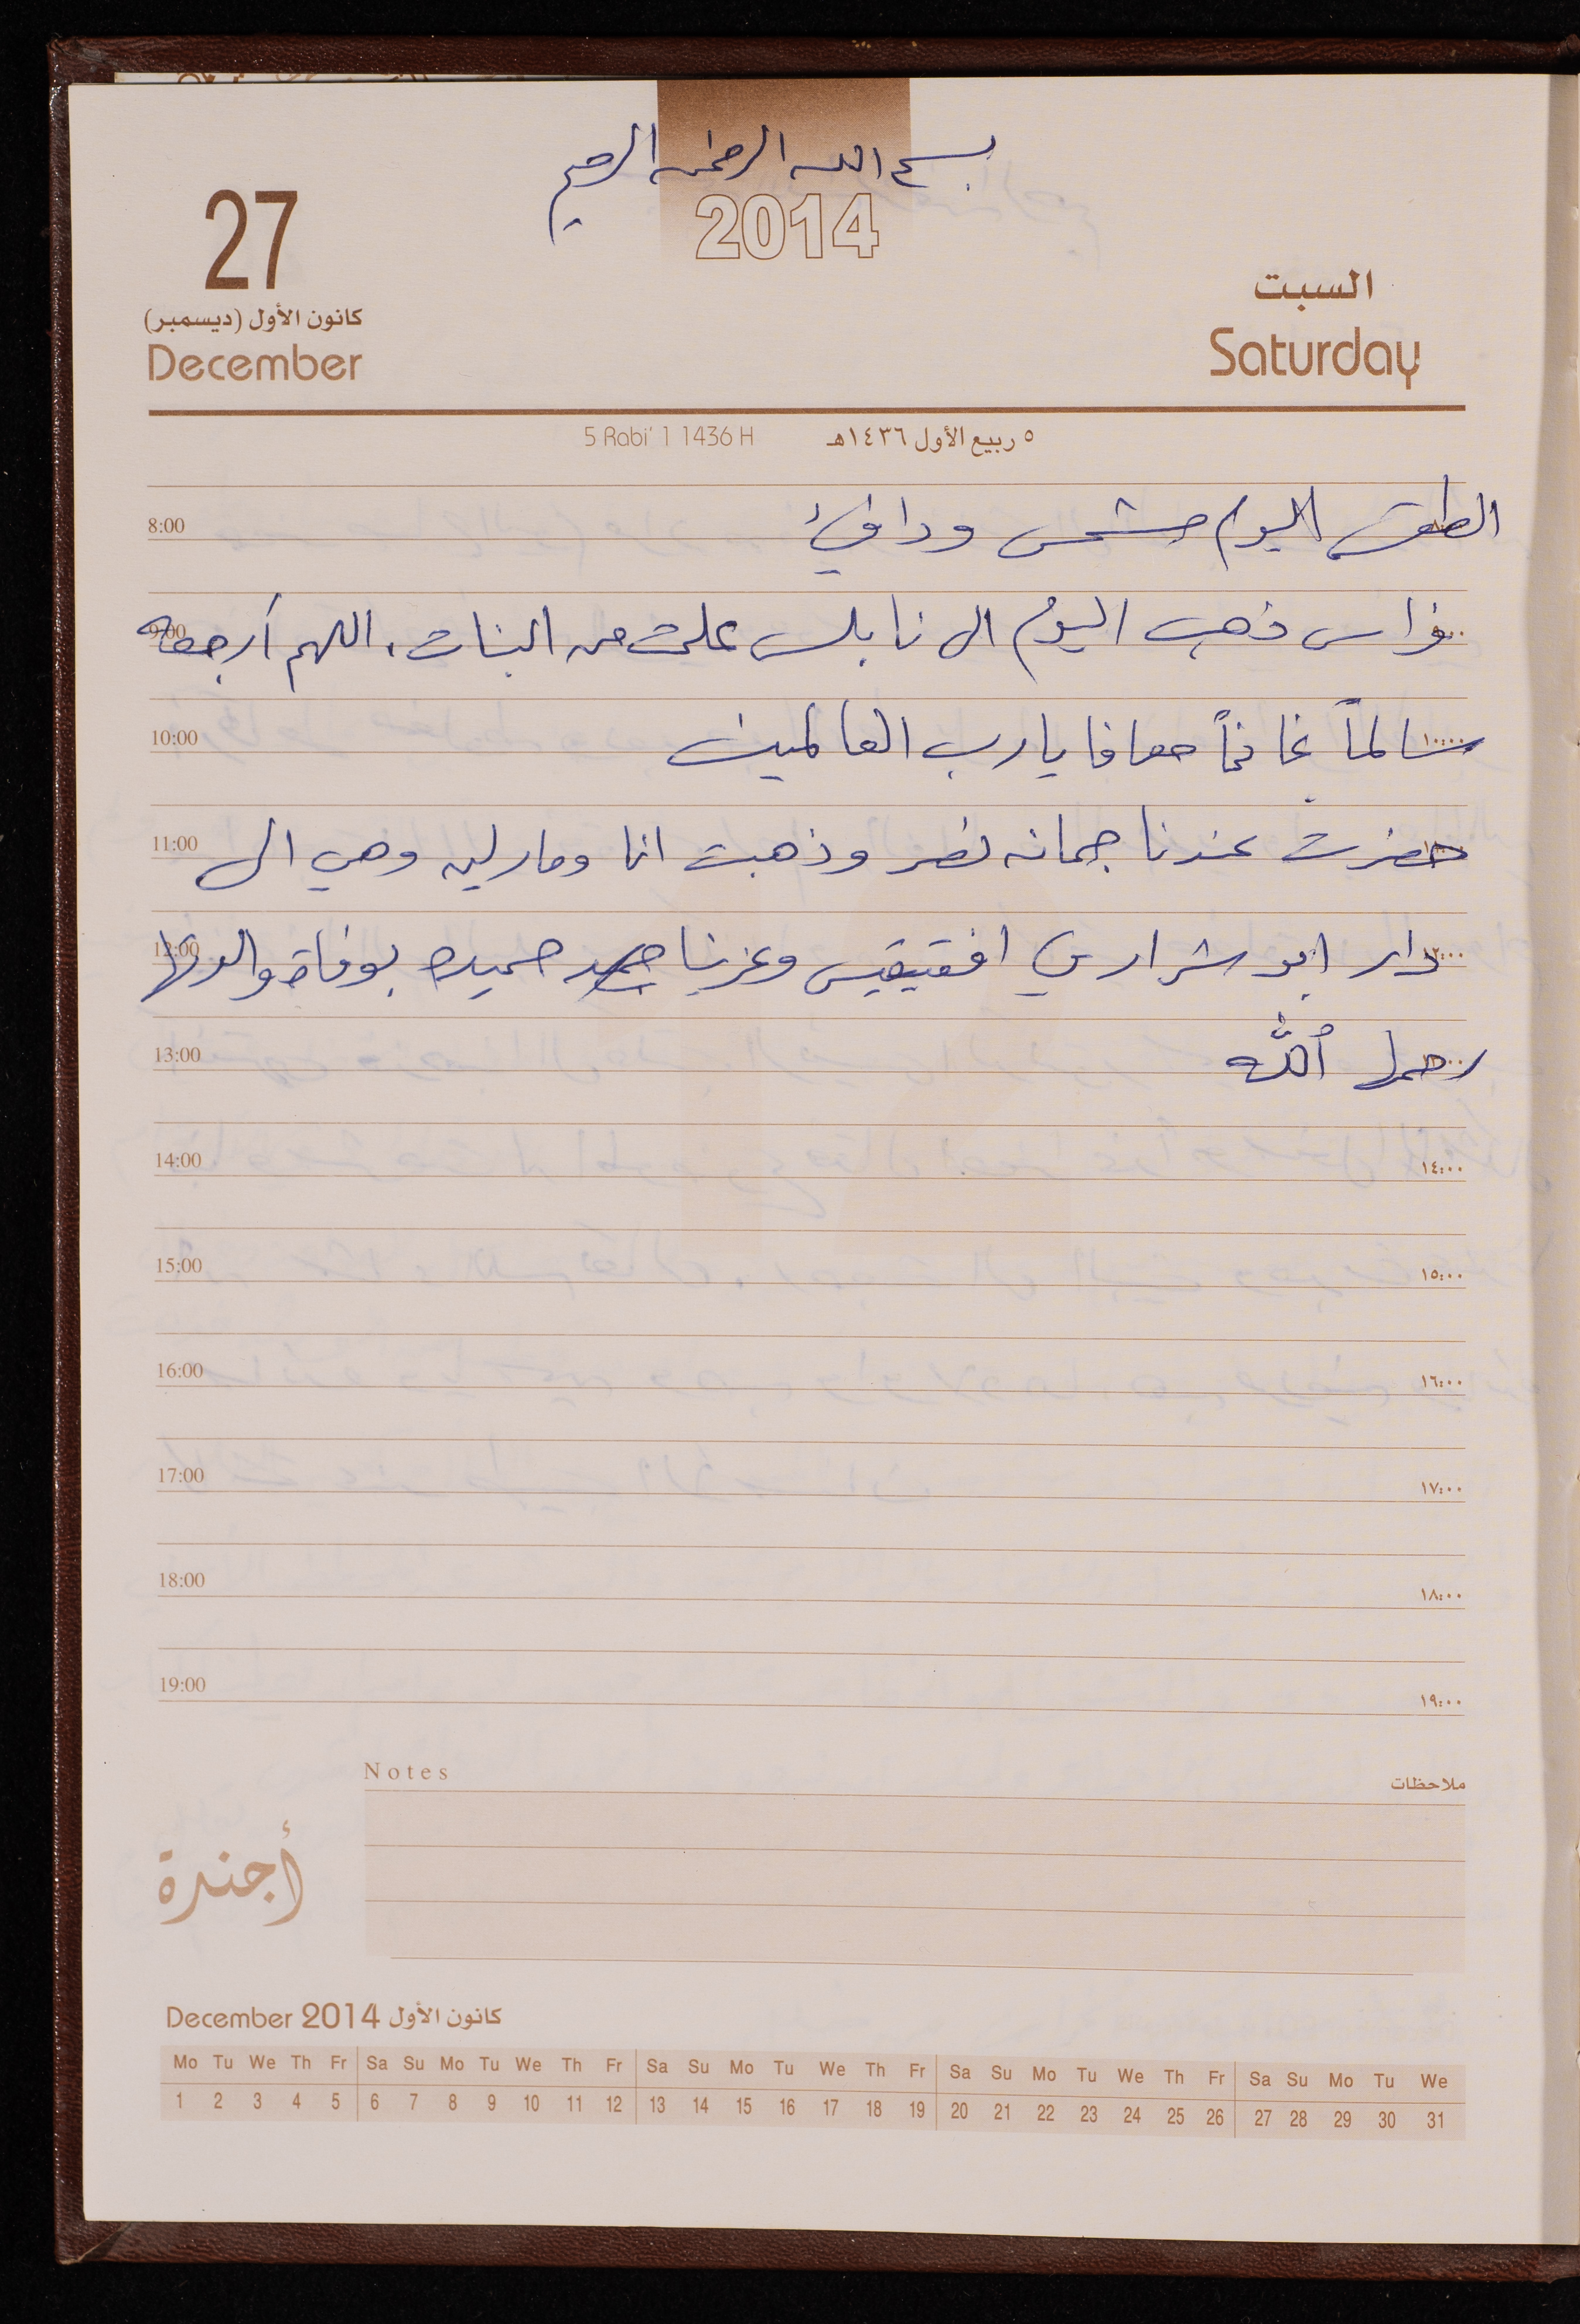 بسم الله الرحمن الرحيم
2014
27
كانون الأول (ديسمبر)
December
السبت
Saturday
5 Rabi' 1 1436 H
٥ ربيع الأول ١٤٣٦هـ
8:00 الطقس اليوم مشمس ودافئ
9:00 فراس ذهب اليوم الى نابلس علمت من البنات، اللهم أرجعه
10:00 سالماً غانماً معافا يا رب العالمين ١٠:٠٠
11:00 حضرت عندنا جمانه نصر وذهبت انا ومارلين وهي الى
12:00 دار ابو شرار افقيقيس وعزينا حميده بوفاة والدتها
13:00 رحمها الله
14:00 ١٤:٠٠
15:00 ١٥:٠٠
16:00 ١٦:٠٠
17:00 ١٧:٠٠
18:00 ١٨:٠٠
19:00 ١٩:٠٠
Notes ملاحظات
أجندة
December 2014 كانون الأول
Mo Tu We Th Fr Sa Su Mo Tu We Th Fr Sa Su Mo Tu We Th Fr Sa Su Mo Tu We Th Fr Sa Su Mo Tu We
1 2 3 4 5 6 7 8 9 10 11 12 13 14 15 16 17 18 19 20 21 22 23 24 25 26 27 28 29 30 31